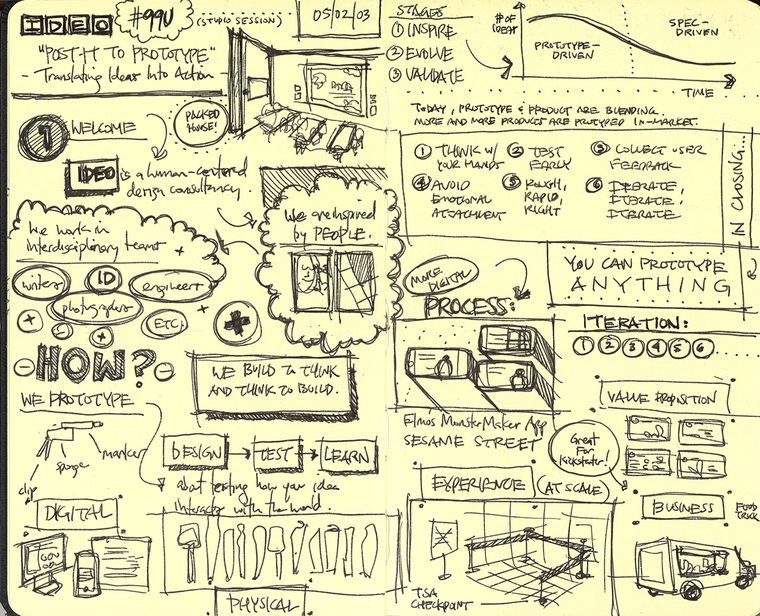 IDEO #99U (STUDIO SESSION) 05/02/03
"POST-IT TO PROTOTYPE"
- Translating Ideas Into Action -
PACKED
HOUSE!
1 WELCOME
IDEO is a human-centered
design consultancy.
We work in
Interdisciplinary teams
writers
ID
engineers
photographers
ETC.
We are inspired
by PEOPLE.
- HOW? -
WE PROTOTYPE
WE BUILD TO THINK
AND THINK TO BUILD.
clip
sponge
marker
DESIGN
TEST
LEARN
about testing how your idea
interacts with the world.
DIGITAL
PHYSICAL
STAGES
1 INSPIRE
2 EVOLVE
3 VALIDATE
# OF
IDEAS
PROTOTYPE-
DRIVEN
SPEC-
DRIVEN
TIME
TODAY, PROTOTYPE & PRODUCT ARE BLENDING.
MORE AND MORE PRODUCTS ARE PROTYPED IN-MARKET.
1 THINK W/
YOUR HANDS
2 TEST
EARLY
3 COLLECT USER
FEEDBACK
4 AVOID
EMOTIONAL
ATTACHMENT
5 ROUGH,
RAPID,
RIGHT
6 ITERATE,
ITERATE,
ITERATE
IN CLOSING...
YOU CAN PROTOTYPE
ANYTHING
MORE
DIGITAL
PROCESS:
Elmo's Monster Maker App
SESAME STREET
ITERATION:
1 2 3 4 5 6
VALUE PROPOSITION
Great
For
Kickstarter!
EXPERIENCE (AT SCALE)
TSA
CHECKPOINT
BUSINESS
FOOD
TRUCK